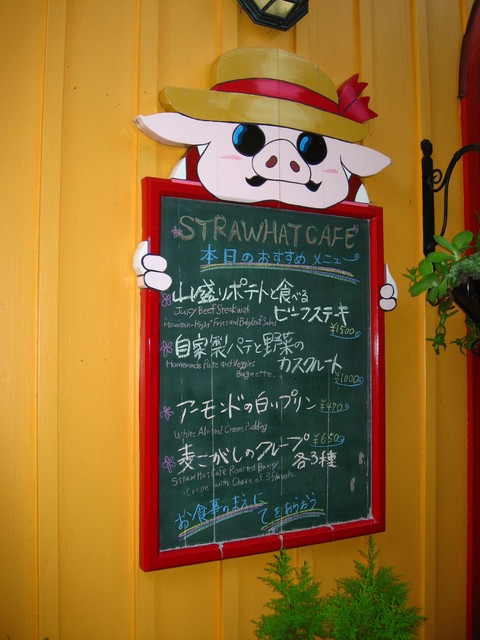 STRAWHAT CAFE
本日のおすすめ メニュー
山盛りポテトと食べる
ビーフステキ
Juicy Beef Steak with
"Mountain-High" Fries and Babyleaf Salad
¥1500
自家製パテと野菜の
カスクルート
Homemade Pate and Veggies
Baguette.
¥1000
アーモンドの白いプリン ¥470
White Almond Cream Pudding
麦こがしのクレープ ¥650
各3種
STRAWHAT CAFE Roasted Barley
Crepe with Choice of 3 flavors.
お食事のまえに
てをあらおう